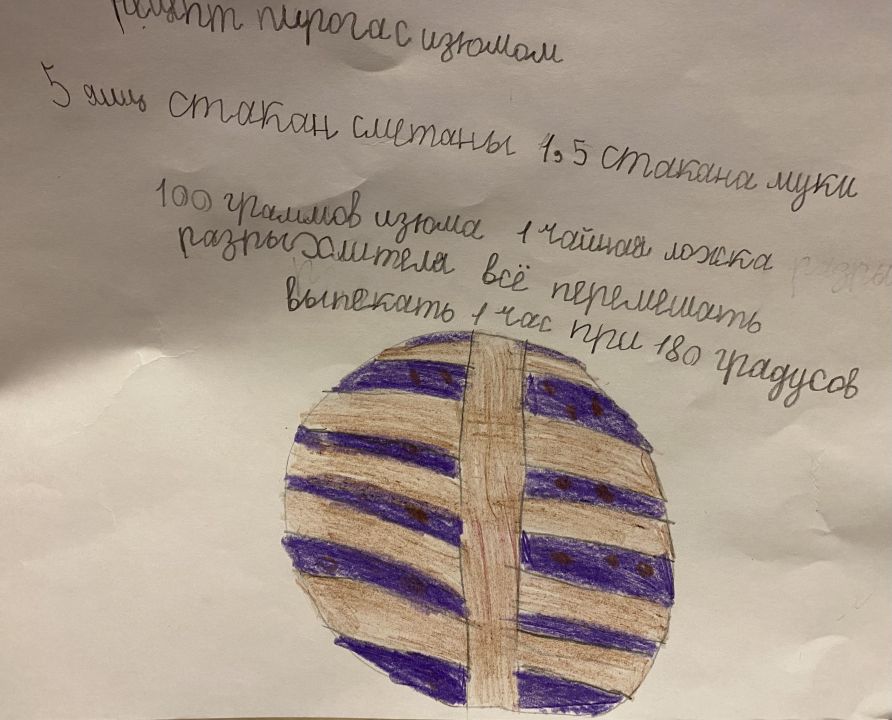 рецепт пирога с изюмом
5 яиц стакан сметаны 1,5 стакана муки
100 граммов изюма 1 чайная ложка
разрыхлителя всё перемешать
выпекать 1 час при 180 градусов